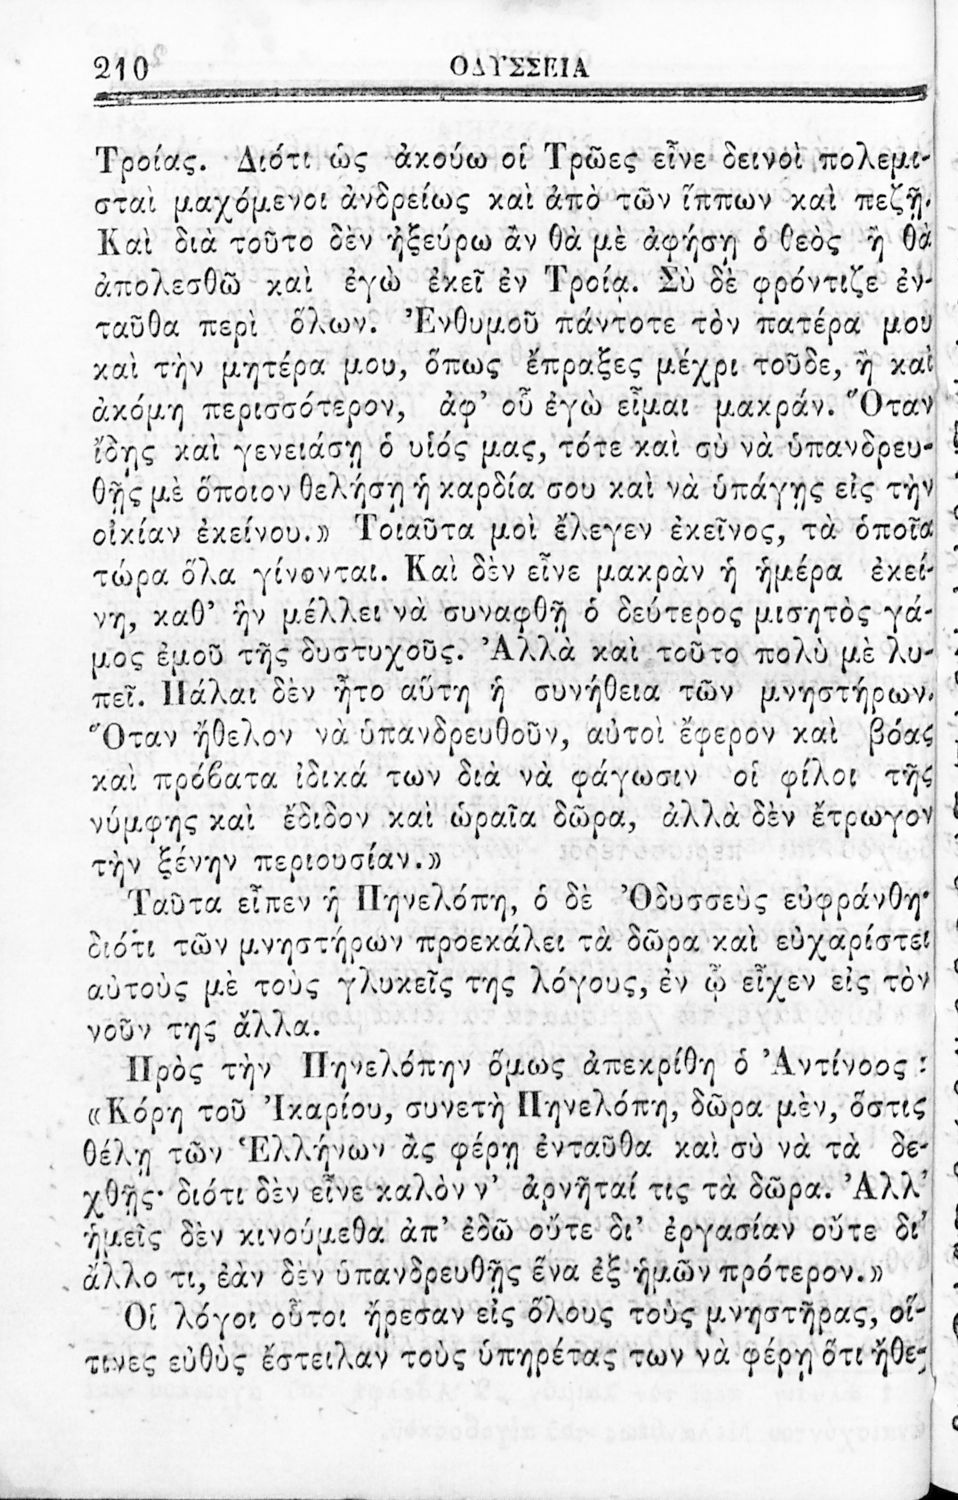 210 ΟΔΥΣΣΕΙΑ
Τροίας. Διότι ὡς ἀκούω οἱ Τρῶες εἶνε δεινοὶ πολεμι-
σταὶ μαχόμενοι ἀνδρείως καὶ ἀπὸ τῶν ἵππων καὶ πεζῇ.
Καὶ διὰ τοῦτο δὲν ἠξεύρω ἂν θὰ μὲ ἀφήσῃ ὁ θεὸς ἢ θὰ
ἀπολεσθῶ καὶ ἐγὼ ἐκεῖ ἐν Τροίᾳ. Σὺ δὲ φρόντιζε ἐν-
ταῦθα περὶ ὅλων. Ἐνθυμοῦ πάντοτε τὸν πατέρα μου
καὶ τὴν μητέρα μου, ὅπως ἔπραξες μέχρι τοῦδε, ἢ καὶ
ἀκόμη περισσότερον, ἀφ’ οὗ ἐγὼ εἶμαι μακράν. Ὅταν
ἴδῃς καὶ γενειάσῃ ὁ υἱός μας, τότε καὶ σὺ νὰ ὑπανδρευ-
θῇς μὲ ὅποιον θελήσῃ ἡ καρδία σου καὶ νὰ ὑπάγῃς εἰς τὴν
οἰκίαν ἐκείνου.» Τοιαῦτα μοὶ ἔλεγεν ἐκεῖνος, τὰ ὁποῖα
τώρα ὅλα γίνονται. Καὶ δὲν εἶνε μακρὰν ἡ ἡμέρα ἐκεί-
νη, καθ’ ἣν μέλλει νὰ συναφθῇ ὁ δεύτερος μισητὸς γά-
μος ἐμοῦ τῆς δυστυχοῦς. Ἀλλὰ καὶ τοῦτο πολὺ μὲ λυ-
πεῖ. Πάλαι δὲν ἦτο αὕτη ἡ συνήθεια τῶν μνηστήρων.
Ὅταν ἤθελον νὰ ὑπανδρευθοῦν, αὐτοὶ ἔφερον καὶ βόας
καὶ πρόβατα ἰδικά των διὰ νὰ φάγωσιν οἱ φίλοι τῆς
νύμφης καὶ ἔδιδον καὶ ὡραῖα δῶρα, ἀλλὰ δὲν ἔτρωγον
τὴν ξένην περιουσίαν.»
Ταῦτα εἶπεν ἡ Πηνελόπη, ὁ δὲ Ὀδυσσεὺς εὐφράνθη·
διότι τῶν μνηστήρων προεκάλει τὰ δῶρα καὶ εὐχαρίστει
αὐτοὺς μὲ τοὺς γλυκεῖς της λόγους, ἐν ᾧ εἶχεν εἰς τὸν
νοῦν της ἄλλα.
Πρὸς τὴν Πηνελόπην ὅμως ἀπεκρίθη ὁ Ἀντίνοος :
«Κόρη τοῦ Ἰκαρίου, συνετὴ Πηνελόπη, δῶρα μὲν, ὅστις
θέλῃ τῶν Ἑλλήνων ἂς φέρῃ ἐνταῦθα καὶ σὺ νὰ τὰ δε-
χθῇς· διότι δὲν εἶνε καλὸν ν’ ἀρνῆταί τις τὰ δῶρα. Ἀλλ’
ἡμεῖς δὲν κινούμεθα ἀπ’ ἐδῶ οὔτε δι’ ἐργασίαν οὔτε δι’
ἄλλο τι, ἐὰν δὲν ὑπανδρευθῇς ἕνα ἐξ ἡμῶν πρότερον.»
Οἱ λόγοι οὗτοι ἤρεσαν εἰς ὅλους τοὺς μνηστῆρας, οἵ-
τινες εὐθὺς ἔστειλαν τοὺς ὑπηρέτας των νὰ φέρῃ ὅτι ἤθε-